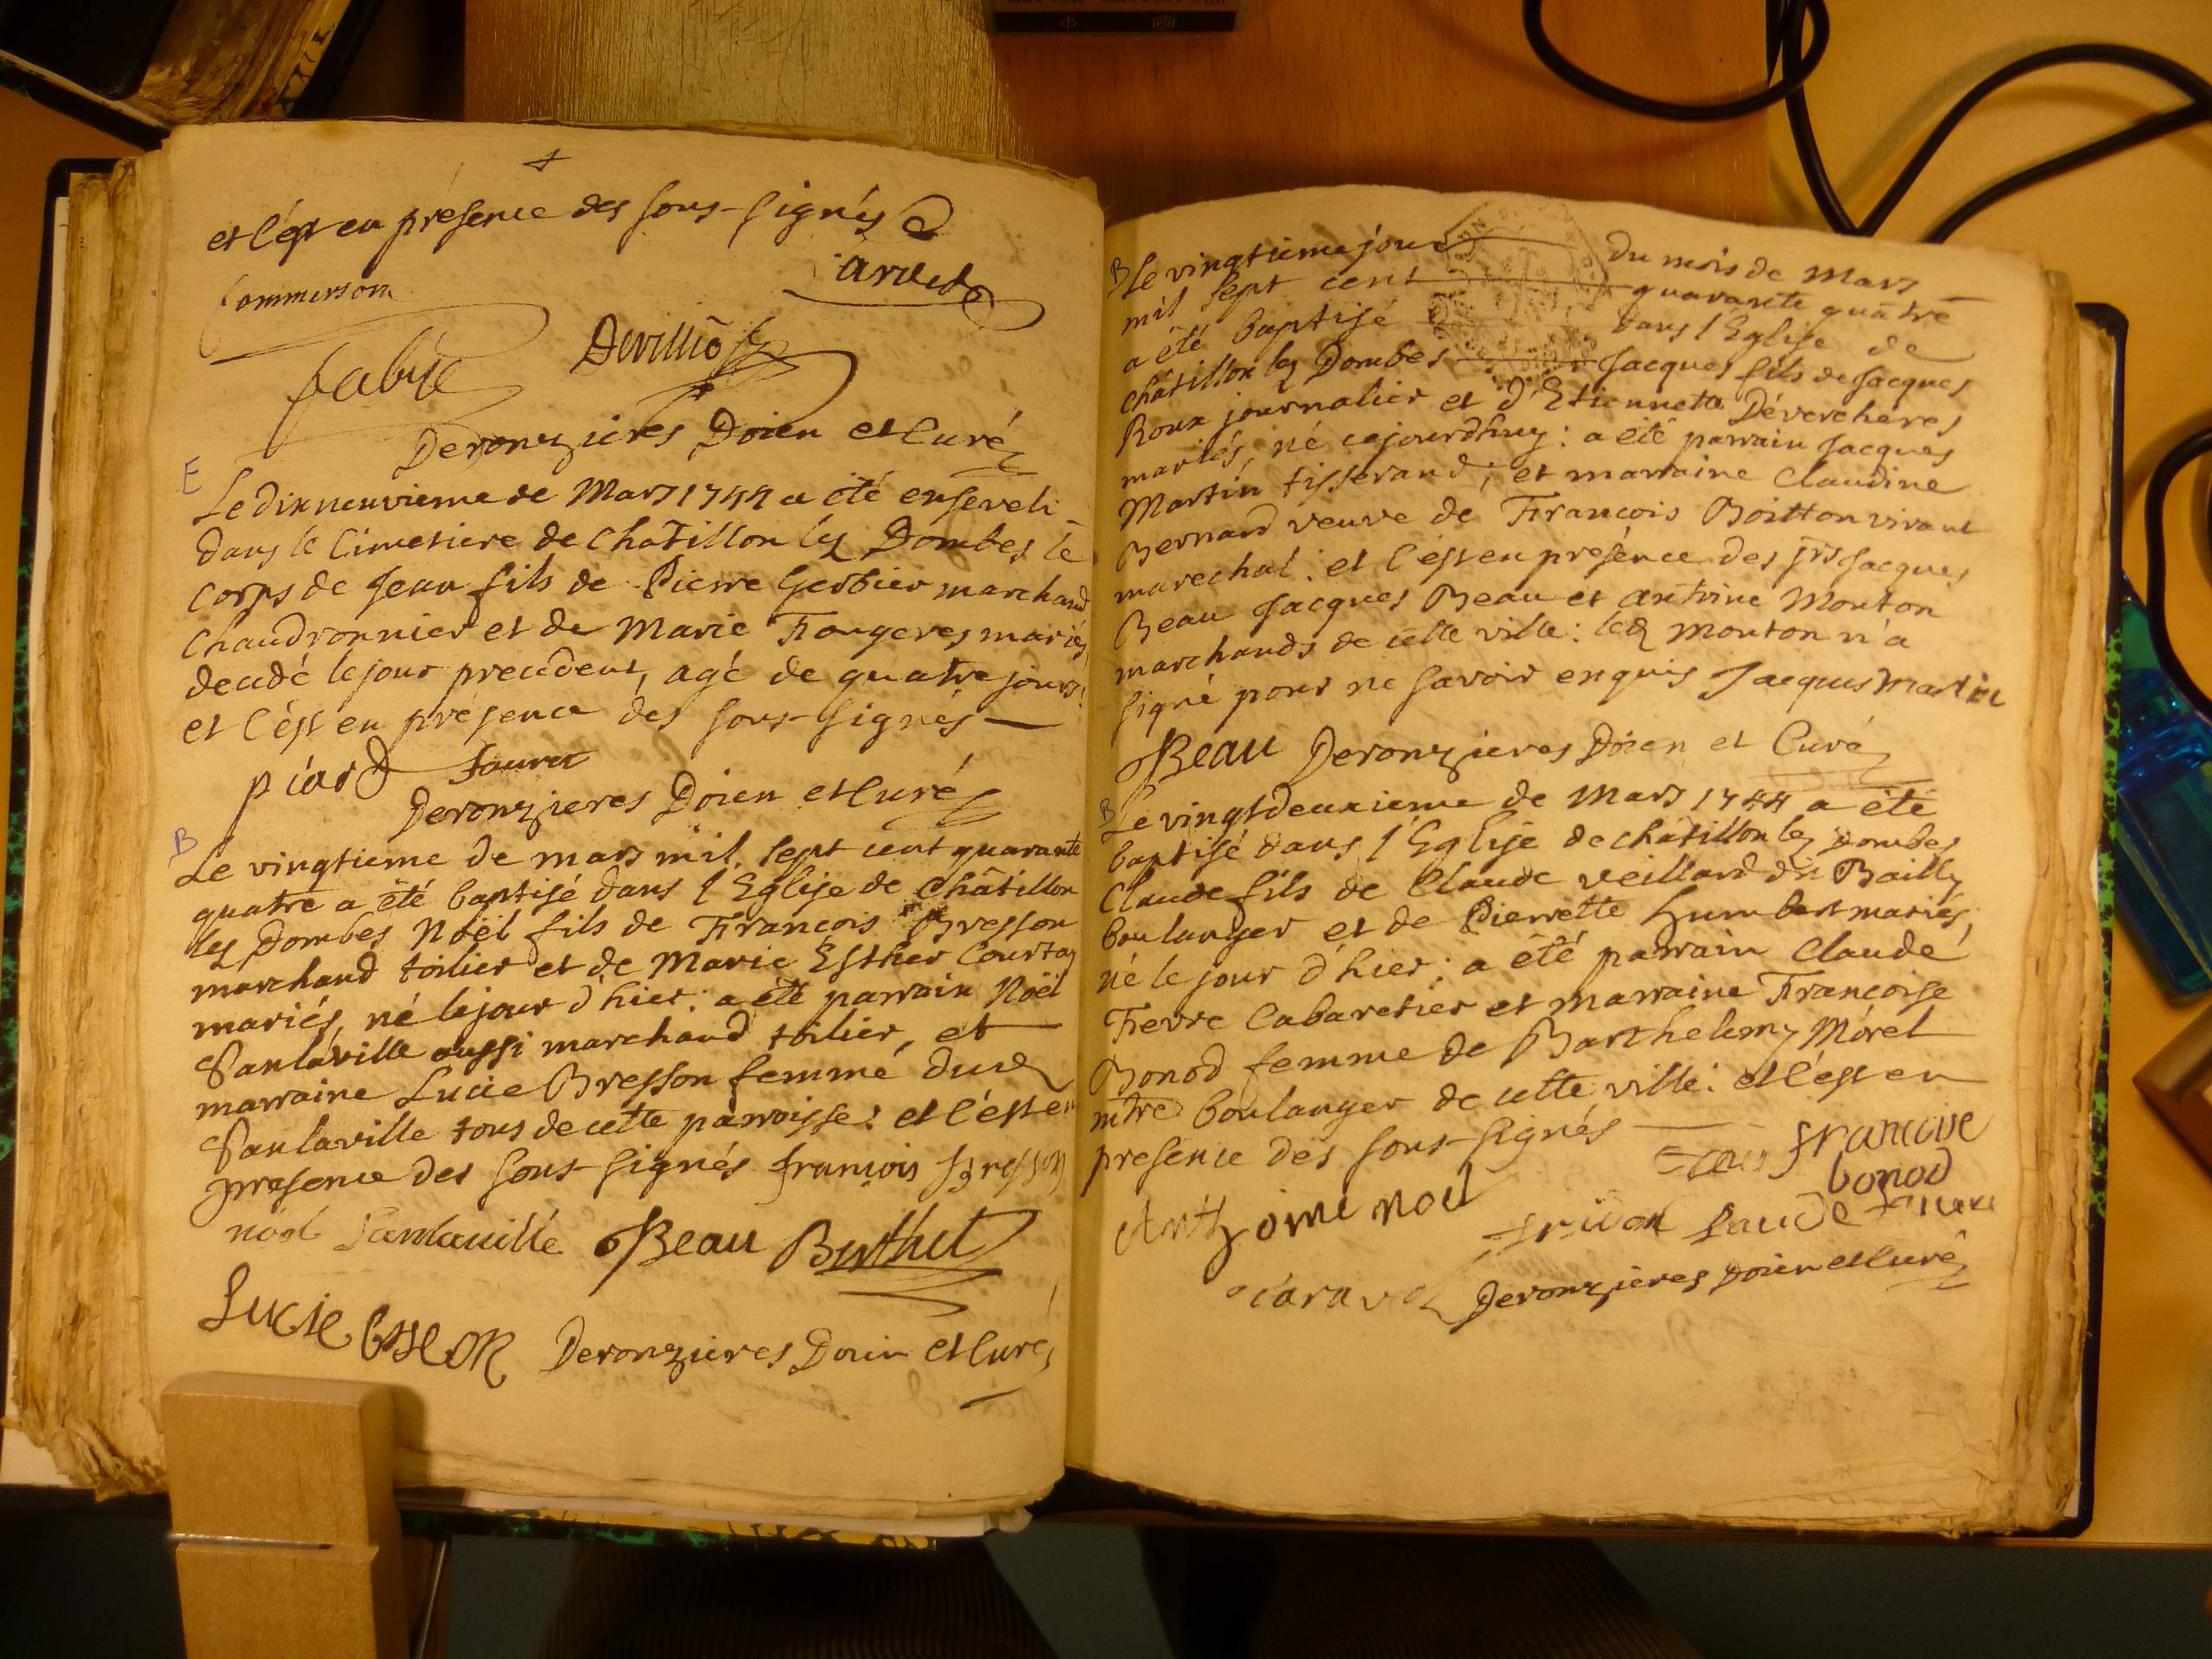 et c'est en présence des sous-signés
Commerson
arvet
fabre
Devillió
Deronzieres Doien et Curé
E
Le dixneuvieme de Mars 1744 a été enseveli
dans le Cimetiere de Chatillon les Dombes le
corps de Jean fils de Pierre Gerbier marchand
Chaudronnier et de Marie Fougeres mariés,
decedé le jour precedent, agé de quatre jours:
et c'est en présence des sous-signés
piard Fauret
Deronzieres Doien et Curé
B
Le vingtieme de mars mil sept cent quarante
quatre a été baptisé dans l'Eglise de Châtillon
les Dombes Noël fils de Francois Bresson
marchand toilier et de Marie Esther Courtay
mariés, né le jour d'hier: a été parrain Noël
Sanlaville aussi marchand toilier, et
marraine Lucie Bresson femme dud
Sanlaville tous de cette parroisse: et c'est en
presence des sous-signés françois Bresson
noel Sanlaville Beau Berthet
Lucie Deronzieres Doien et Curé
B Le vingtieme jour du mois de Mars
mil sept cent quarante quatre
a été baptisé dans l'Eglise de
châtillon les Dombes Jacques fils de Jacques
Roux journalier et d'Etiennette Déverchéres
mariés, né cejourdhuy: a été parrain Jacques
Martin tisserand; et marraine Claudine
Bernard veuve de Francois Boitton vivant
marechal: et c'est en présence des srs Jacques
Beau Jacques Beau et antoine Monton
marchands de cette ville: led monton n'a
signé pour ne savoir enquis Jacques martin
Beau Deronzieres Doien et Curé
B
Le vingtdeuxieme de Mars 1744 a été
baptisé dans l'Eglise de châtillon les Dombes
Claude fils de Claude veillard dit Bailly
boulanger et de Pierrette humbert mariés,
né le jour d'hier: a été parrain Claude
Fievre Cabaretier et marraine Francoise
Bonod femme de Barthelemy Morel
mtre boulanger de cette ville: et c'est en
presence des sous-signés
francoise
bonod
Anthoine
Deronzieres Doien et Curé